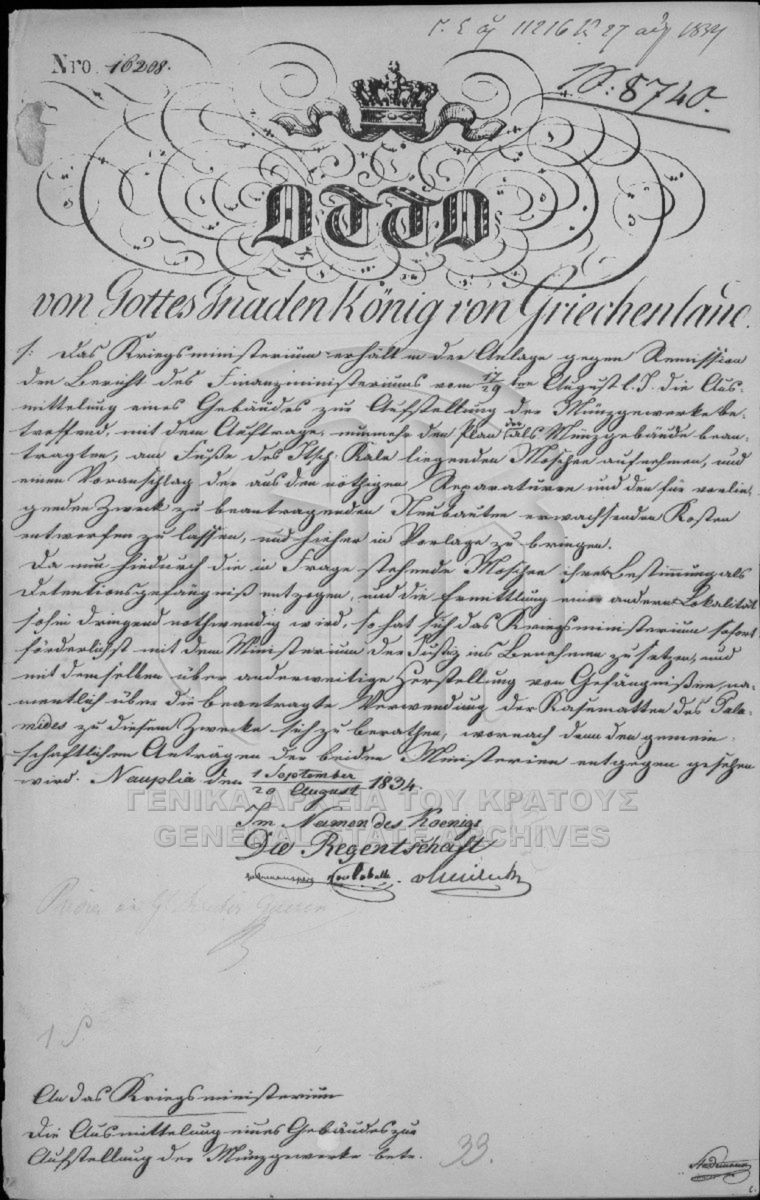 11216 27 1834
Nro. 16208.
No: 8740.
OTTO
von Gottes Gnaden König von Griechenland.
1: Das Kriegsministerium erhält in der Anlage gegen Remission
den Bericht des Finanzministeriums vom 17/29ten August l. J. die Aus-
mittelung eines Gebäudes zur Aufstellung der Münzgewerke be-
treffend, mit dem Auftrage, nunmehr den Plan der als Münzgebäude bean-
tragten, am Fuße des Itsch Kale liegenden Moschee aufnehmen, und
einen Voranschlag der aus den nöthigen Reparaturen und den für vorlie-
genden Zweck zu beantragenden Neubauten erwachsenden Kosten
entwerfen zu lassen, und hieher in Vorlage zu bringen.
Da nun hiedurch die in Frage stehende Moschee ihrer Bestimmung als
Detentionsgefängniß entzogen, und die Ermittlung einer andern Lokalität
sohin dringend nothwendig wird, so hat sich das Kriegsministerium sofort
förderlichst mit dem Ministerium der Justiz ins Benehmen zu setzen, und
mit demselben über anderweitige Herstellung von Gefängnißen, na-
mentlich über die beantragte Verwendung der Kasematten des Pala-
mides zu diesem Zwecke sich zu berathen, wornach dann den gemein-
schaftlichen Anträgen der beiden Ministerien entgegen gesehen
wird. Nauplia den 1 September/20 August 1834.
ΓΕΝΙΚΑ ΑΡΧΕΙΑ ΤΟΥ ΚΡΑΤΟΥΣ
Im Namen des Koenigs
GENERAL STATE ARCHIVES
Die Regentschaft
An das Kriegsministerium
Die Ausmittelung eines Gebäudes zur
Aufstellung der Münzgewerke betr.
33.